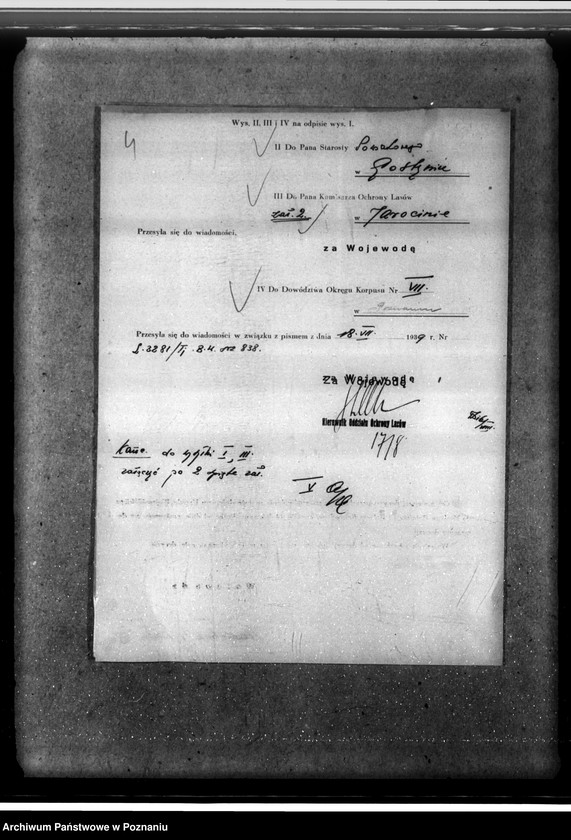 4
Wys. II, III i IV na odpisie wys. I.
II Do Pana Starosty Powiatowego
w Gostyniu
III Do Pana Komisarza Ochrony Lasów
zał. 2. w Jarocinie
Przesyła się do wiadomości,
za Wojewodę
IV Do Dowództwa Okręgu Korpusu Nr VII.
w Poznaniu
Przesyła się do wiadomości w związku z pismem z dnia 18.VII. 1939 r. Nr
L.3281/ B.U. 838.
Za Wojewodę
Kierownik Oddziału Ochrony Lasów
17/8
Kanc. do I, III.
załączyć po 2 zał.
V
Wojewoda
Archiwum Państwowe w Poznaniu